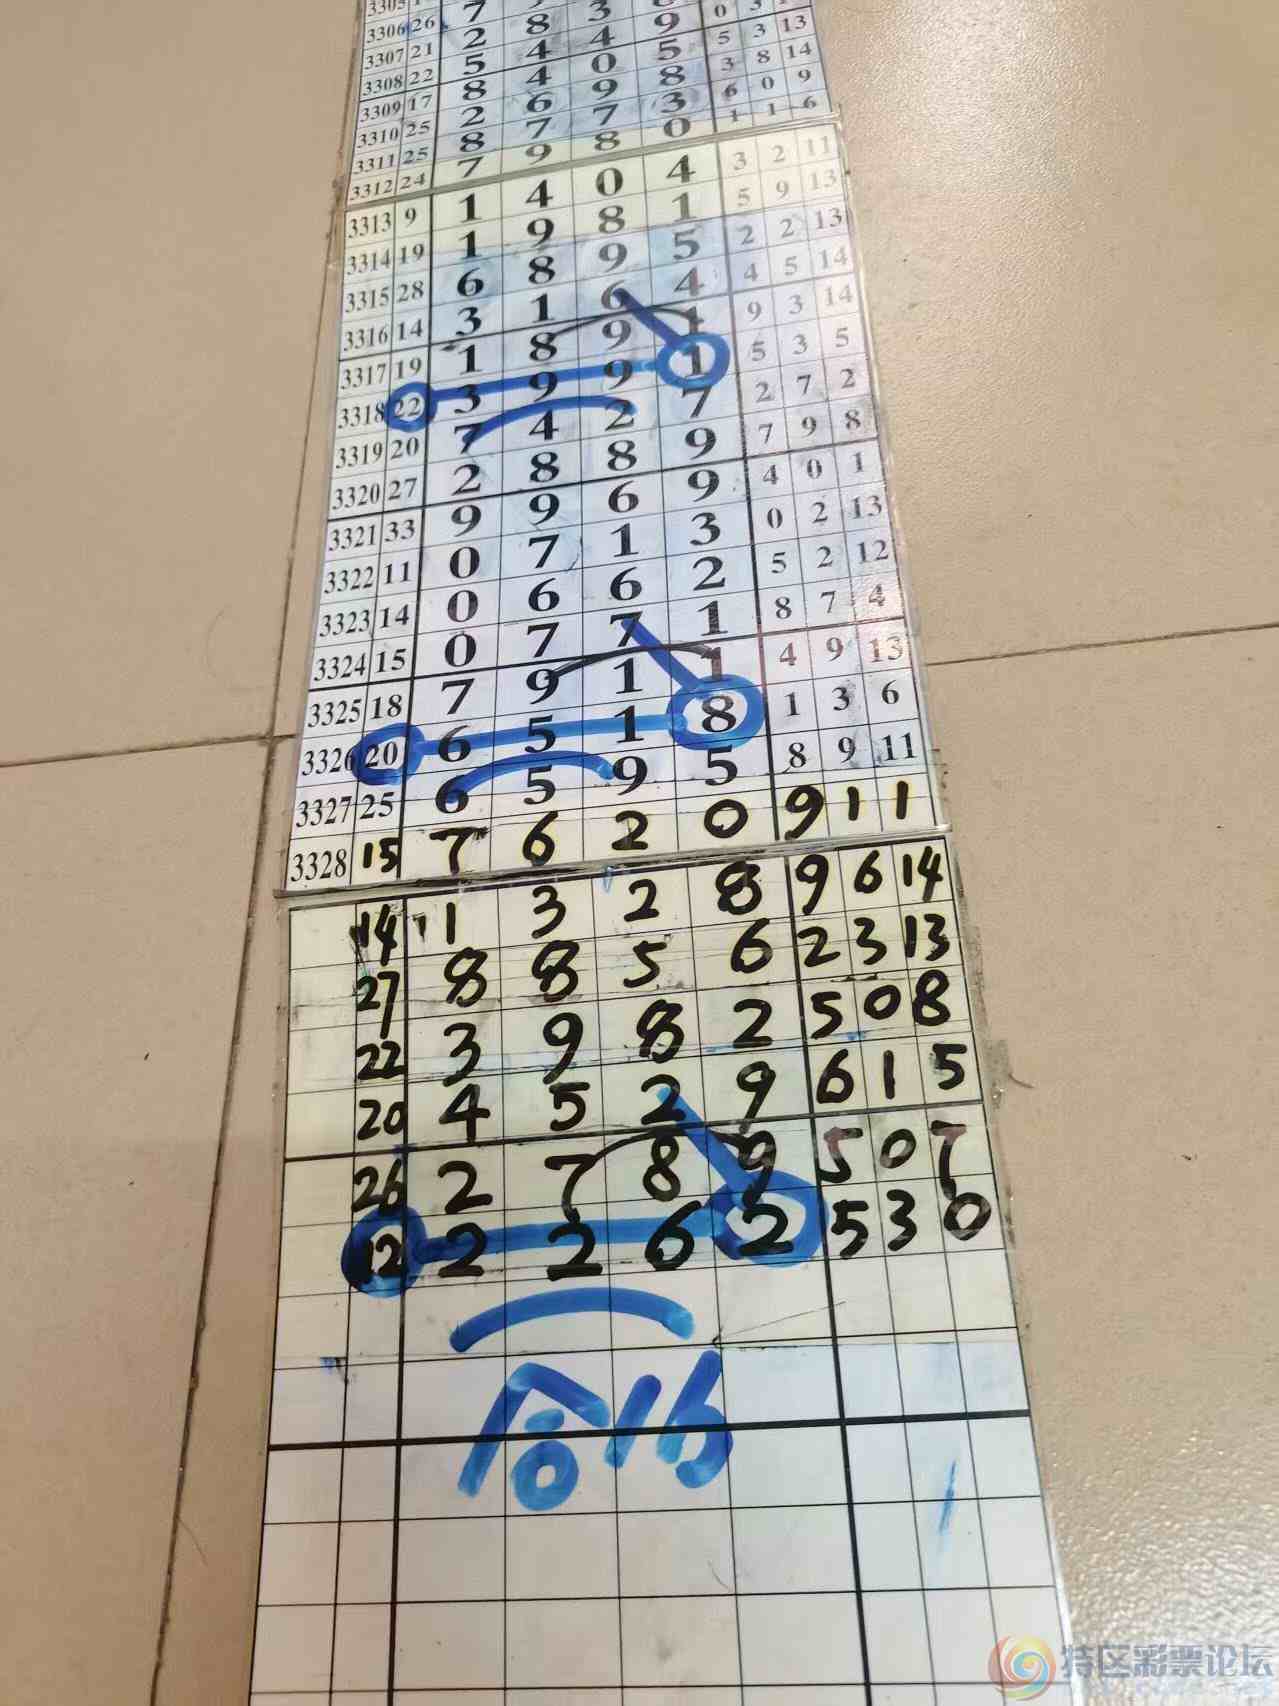 3306 26 7 8 3 9 0 3
3307 21 2 4 4 5 5 3 13
3308 22 5 4 0 8 3 8 14
3309 17 8 6 9 3 6 0 9
3310 25 2 7 7 0 1 1 6
3311 25 8 9 8
3312 24 7 4 0 4 3 2 11
3313 9 1 9 8 1 5 9 13
3314 19 1 8 9 5 2 2 13
3315 28 6 1 6 4 4 5 14
3316 14 3 8 9 1 9 3 14
3317 19 1 9 9 1 5 3 5
3318 22 3 4 2 7 2 7 2
3319 20 7 8 8 9 7 9 8
3320 27 2 9 6 9 4 0 1
3321 33 9 7 1 3 0 2 13
3322 11 0 6 6 2 5 2 12
3323 14 0 7 7 1 8 7 4
3324 15 0 9 1 1 4 9 13
3325 18 7 5 1 8 1 3 6
3326 20 6 5 9 5 8 9 11
3327 25 6 6 2 0 9 1 1
3328 15 7
14 1 3 2 8 9 6 14
27 8 8 5 6 2 3 13
22 3 9 8 2 5 0 8
20 4 5 2 9 6 1 5
26 2 7 8 9 5 0 7
12 2 2 6 2 5 3 0
合16
特区彩票论坛